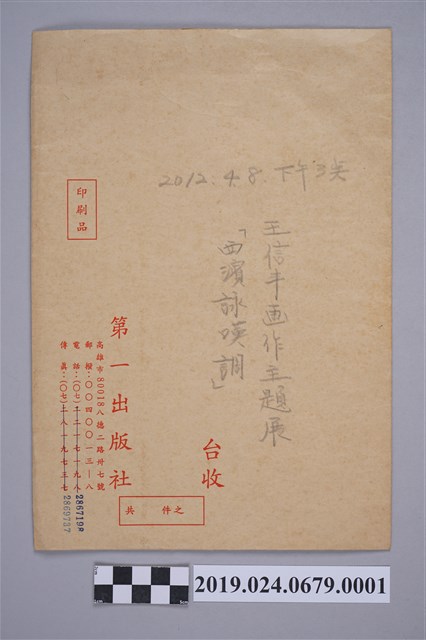 2012.4.8.下午3矣
王信丰画作主題展
「西濱詠嘆調」
印刷品
台收
第一出版社
高雄市80018八德二路卅七號
郵撥:〇〇四〇〇一三—八
電話:(〇七)二一七一九八
2867198
傳真:(〇七)二八一九七三七
2869737
共 件之
2019.024.0679.0001